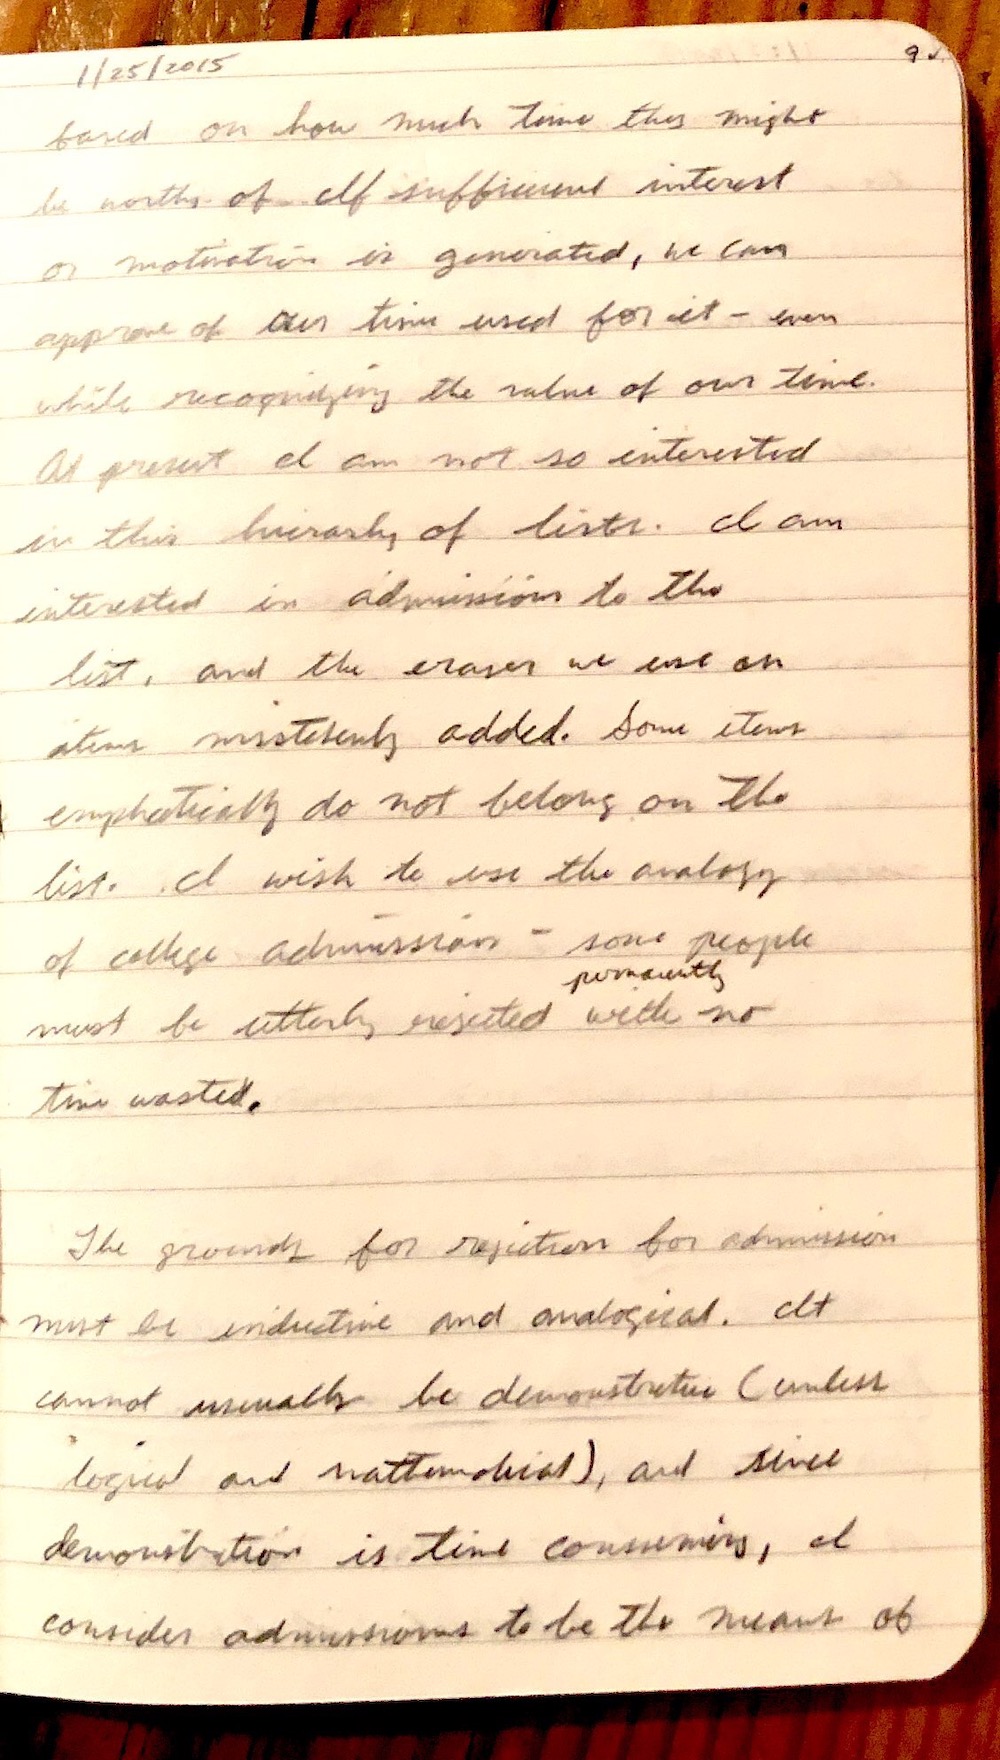 1/25/2015
9
based on how much time they might
be worthy of. If sufficient interest
or motivation is generated, we can
approve of our time used for it - even
while recognizing the value of our time.
At present I am not so interested
in this hierarhy of lists. I am
interested in admission to the
list, and the eraser we use on
items mistakenly added. Some items
emphatically do not belong on the
list. I wish to use the analogy
of college admission - some people
permanently
must be utterly rejected with no
time wasted.
The grounds for rejection for admission
must be inductive and analogical. It
cannot usually be demonstrative (unless
logical and mathematical), and since
demonstration is time consuming, I
consider admissions to be the means of